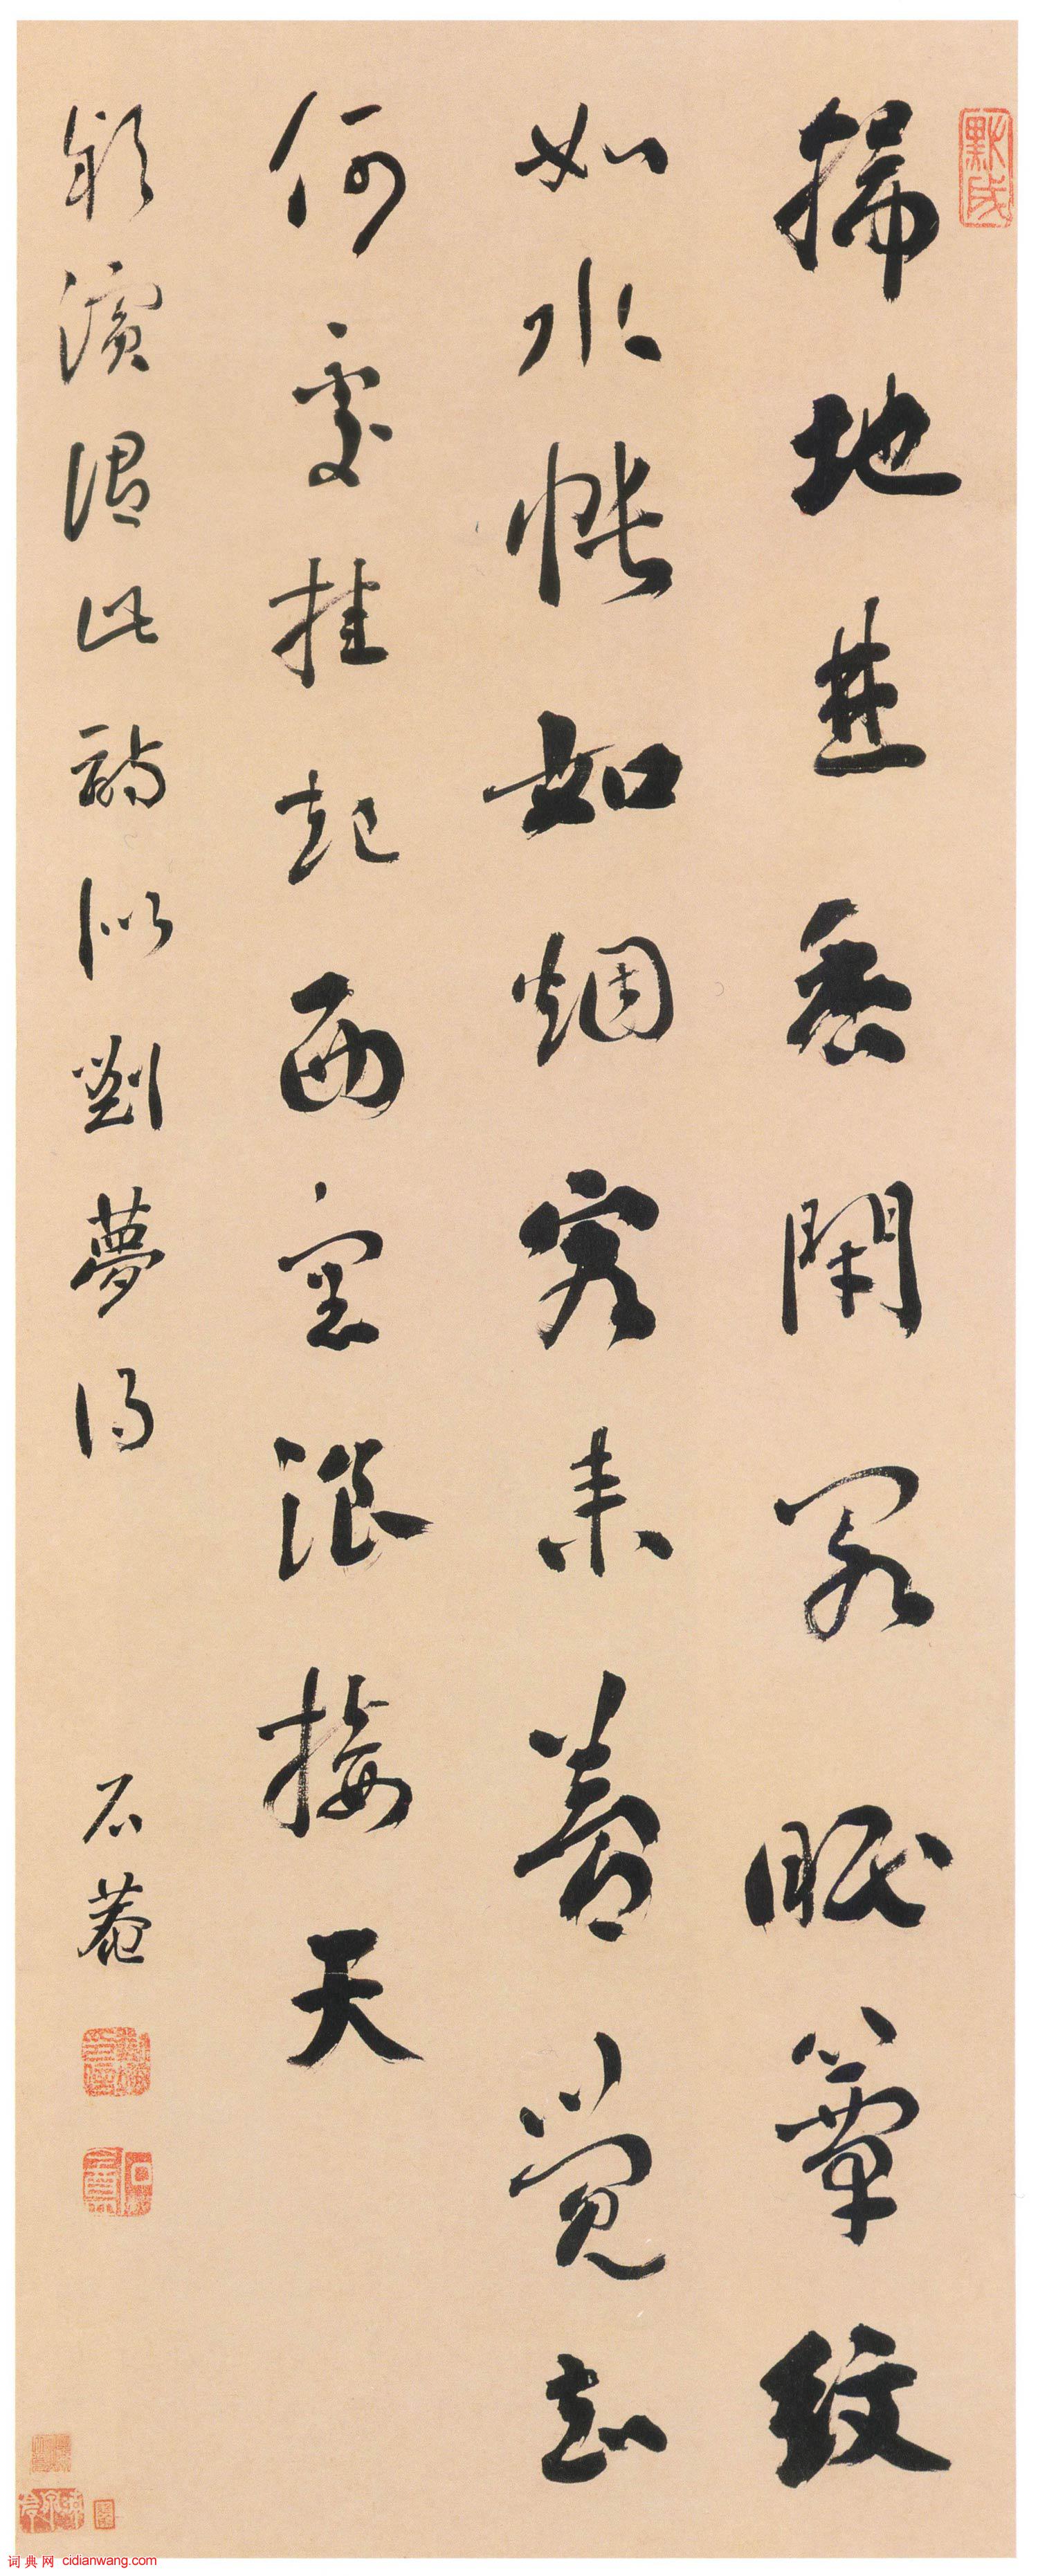 掃地焚香閉閣眠簟紋
如水帳如烟客來夢覺知
何處挂起西窗浪接天
潁濱謂此詩似劉夢得 石菴
词典网 cidianwang.com